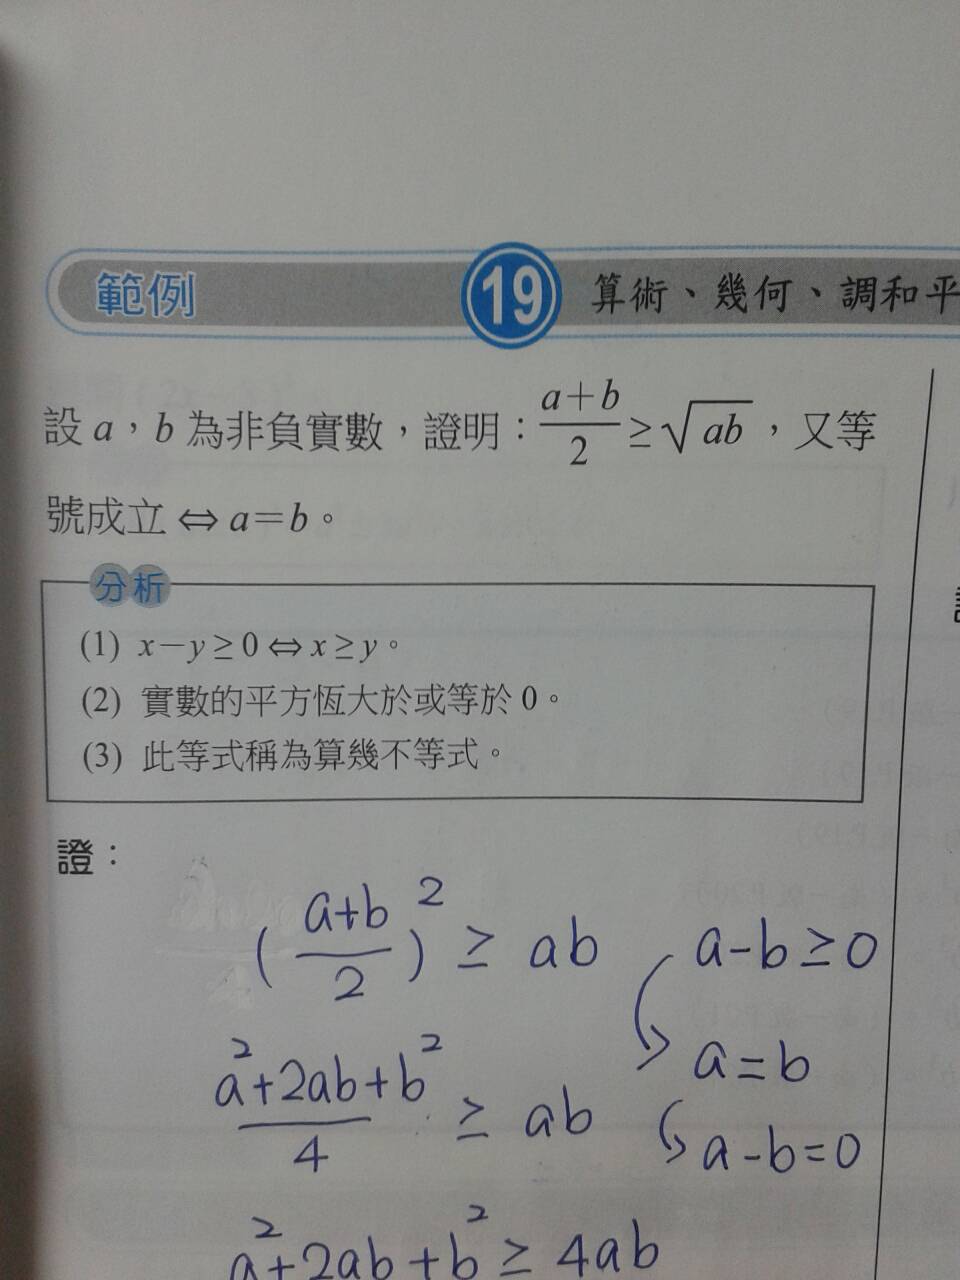 範例 19 算術、幾何、調和平
設 a，b 為非負實數，證明：\frac{a+b}{2} ≥ \sqrt{ab}，又等
號成立 ⇔ a=b。
分析
(1) x−y≥0⇔x≥y。
(2) 實數的平方恆大於或等於 0。
(3) 此等式稱為算幾不等式。
證：
(\frac{a+b}{2})^2 ≥ ab
a-b≥0
a=b
\frac{a^2+2ab+b^2}{4} ≥ ab
a-b=0
a^2+2ab+b^2 ≥ 4ab